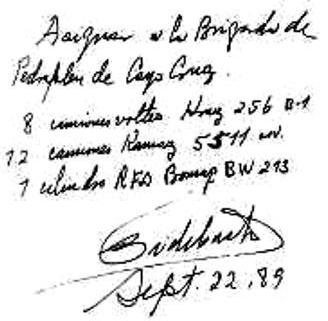 Asignar a la Brigada de
Pedraplén de Cayo Cruz.
8 camiones volteo Kraz 256 B-1
12 camiones Kamaz 5511
1 cilindro RKA Bomag BW 213
Fidel Castro
Sept. 22, 89